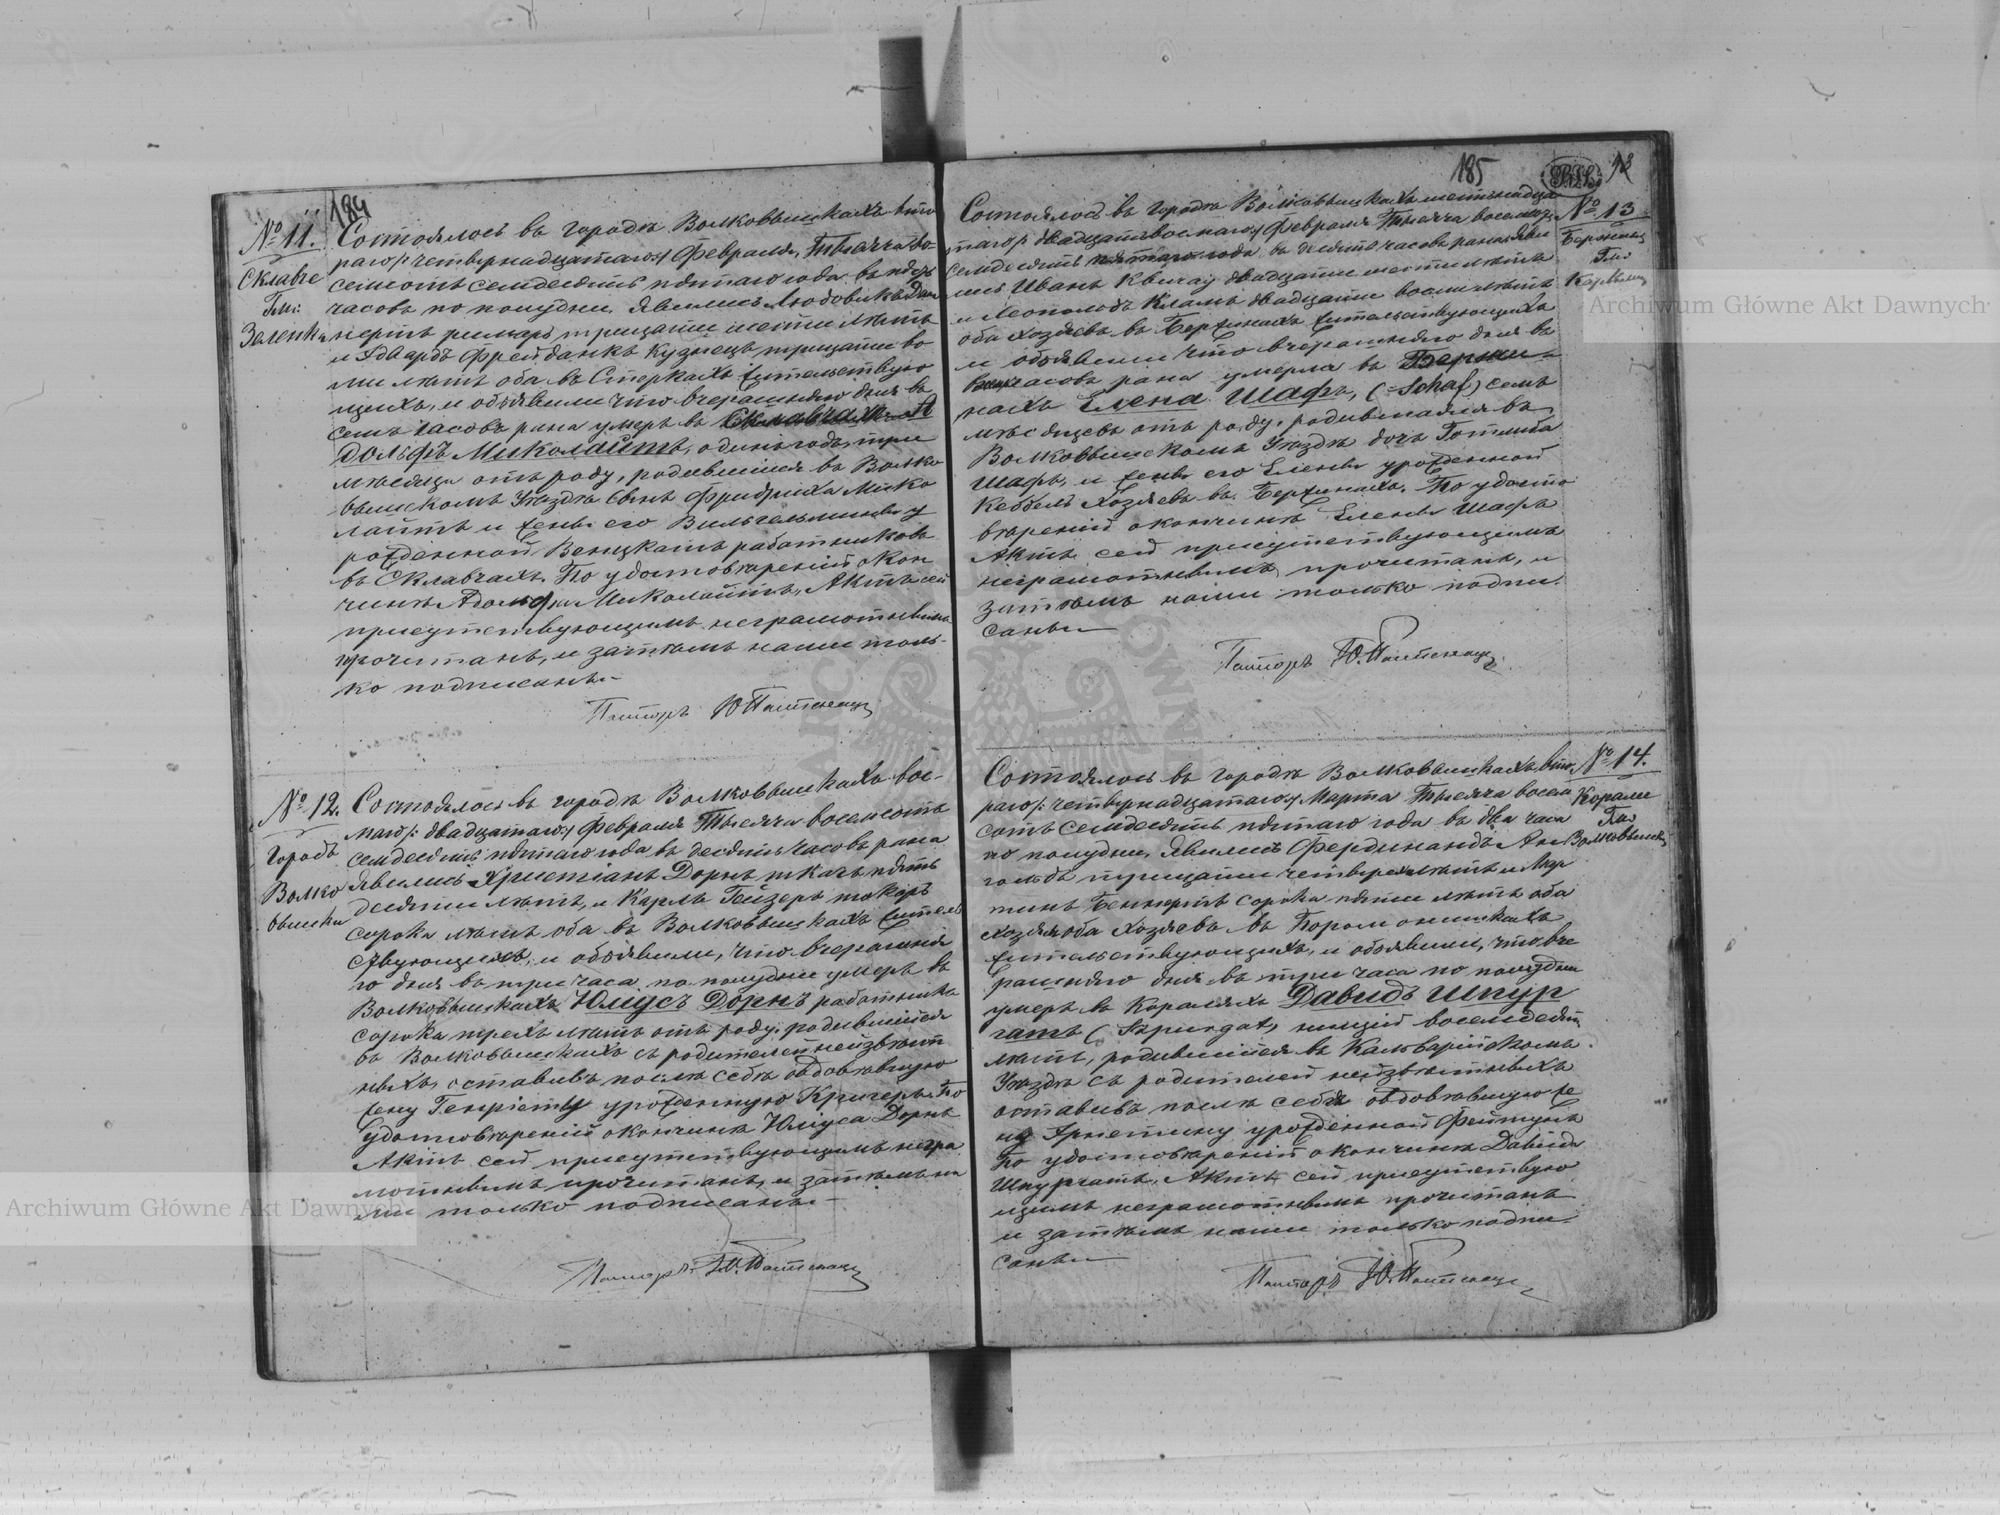 184
№ 11.
Склавче
Гми:
Зеленки
Состоялось въ городѣ Волковышкахъ вто
раго /: четырнадцатаго :/ Февраля, Тысяча во
семсотъ семдесятъ пятаго года въ
часовъ по полудни. Явились Людовикъ
римарь тридцати шести лѣтъ
и Эдвардъ Фрейданкъ кузнецъ тридцати во
сми лѣтъ оба въ Стеркахъ жительствую
щихъ, и объявили что вчерашняго дня въ
семъ часовъ рана умеръ въ Склавчахъ А
дольфъ Миколайтъ, одинъ годъ, три
мѣсяца отъ роду, родившійся въ Волко
вышскомъ Уѣздѣ сынъ Фридриха Мико
лайтъ и жены его Вильгельмины у
рожденной работниковъ
въ Склавчахъ. По удостовѣреніи о кон
чинѣ Адольфа Миколайтъ, Актъ сей
присутствующимъ неграмотнымъ
прочитанъ, и затѣмъ нами толь-
ко подписанъ.
Пасторъ Ю.
№ 12.
Городъ
Волко
вышки
Состоялось въ городѣ Волковышкахъ вос-
маго /: двадцатаго :/ Февраля Тысяча восемсотъ
семдесятъ пятаго года въ десять часовъ рана
Явились Христіанъ Дорнъ ткачъ пять
десяти лѣтъ, и Карлъ Гейзеръ токарь
сорока лѣтъ оба въ Волковышкахъ жител
ствующихъ, и объявили, что вчерашня
го дня въ три часа по полудни умеръ въ
Волковышкахъ Юлиусъ Дорнъ работникъ
сорока трехъ лѣтъ отъ роду, родившійся
въ Волковышкахъ съ родителей неизвѣст
ныхъ, оставивъ послѣ себѣ овдовѣвшую
жену Генріетту урожденную Кригеръ. По
удостовѣреніи о кончинѣ Юлиуса Дорнъ
Актъ сей присутствующимъ негра
мотнымъ прочитанъ, и затѣмъ на
ми только подписанъ.
Пасторъ Ю.
185
№ 13
Гми
Состоялось въ городѣ Волковышкахъ шестьнадца
таго /: двадцать восмаго :/ Февраля Тысяча восемсот
семдесятъ пятаго года въ десять часовъ рана, Яви
лись Иванъ двадцати шести лѣтъ
и Леопольдъ Кламъ двадцати восми лѣтъ
оба хозяевъ въ Бержинахъ жительствующихъ
и объявили что вчерашняго дня въ
часовъ рана умерла въ Бержи-
нахъ Елена Шафъ, (=Schaf) семь
мѣсяцевъ отъ роду, родившаяся въ
Волковышскомъ Уѣздѣ дочь Готлиба
Шафъ, и жены его Елены урожденной
Кеббель хозяевъ въ Бержинахъ. По удосто
вѣреніи о кончинѣ Елены Шафъ
Актъ сей присутствующимъ
неграмотнымъ прочитанъ, и
затѣмъ нами только подпи.
санъ.
Пасторъ Ю.
№ 14.
Корали
Гми
Волковышки
Состоялось въ городѣ Волковышкахъ, вто.
раго /: четырнадцатаго :/ Марта Тысяча восем
сотъ семдесятъ пятаго года въ два часа
по полудни, Явились Фердинандъ Ан
гольдъ тридцати четырехъ лѣтъ и Мар
тинъ сорока пяти лѣтъ оба
хозяевъ въ
жительствующихъ, и объявили, что вче
рашняго дня въ три часа по полудни
умеръ въ Кораляхъ Давидъ Шпур
гатъ (Szpurgat) нищій восемдесят
лѣтъ, родившійся въ Кальварійскомъ
Уѣздѣ съ родителей неизвѣстныхъ
оставивъ послѣ себя овдовѣвшую же
ну Эрнестину урожденной
По удостовѣреніи о кончинѣ Давида
Шпургатъ, Актъ сей присутствую
щимъ неграмотнымъ прочитанъ
и затѣмъ нами только подпи.
санъ.
Пасторъ Ю.
Archiwum Główne Akt Dawnych
Archiwum Główne Akt Dawnych